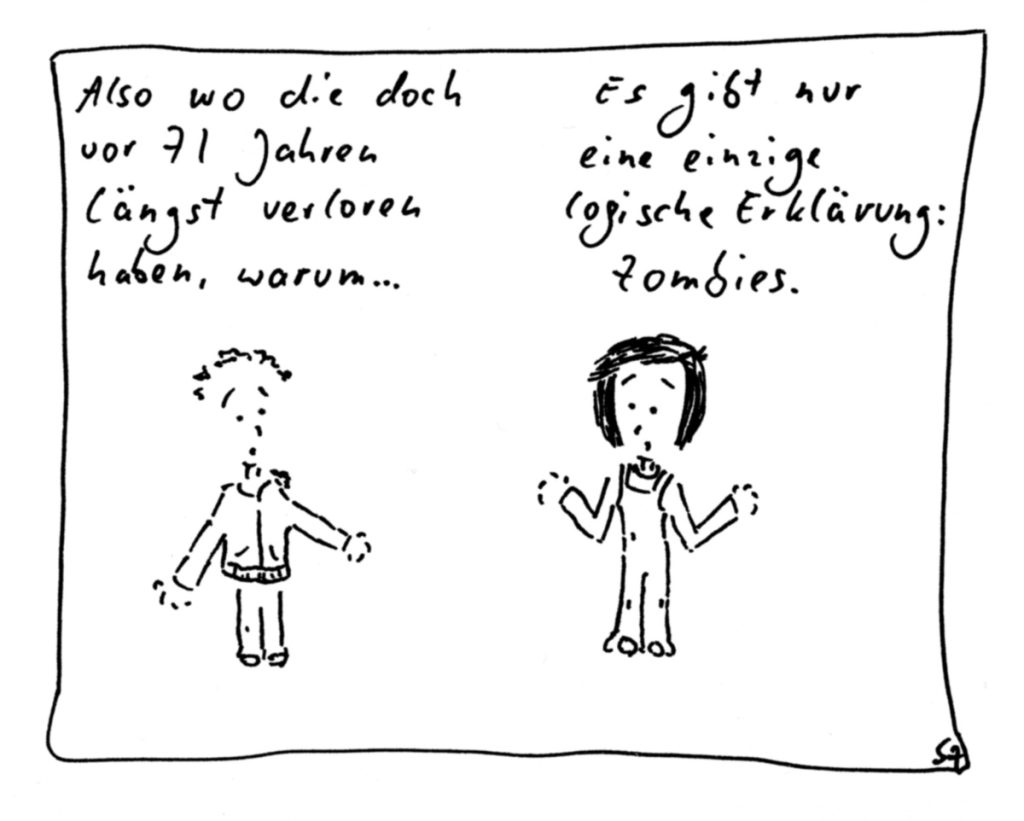 Also wo die doch
vor 71 Jahren
längst verloren
haben, warum...
Es gibt nur
eine einzige
logische Erklärung:
Zombies.